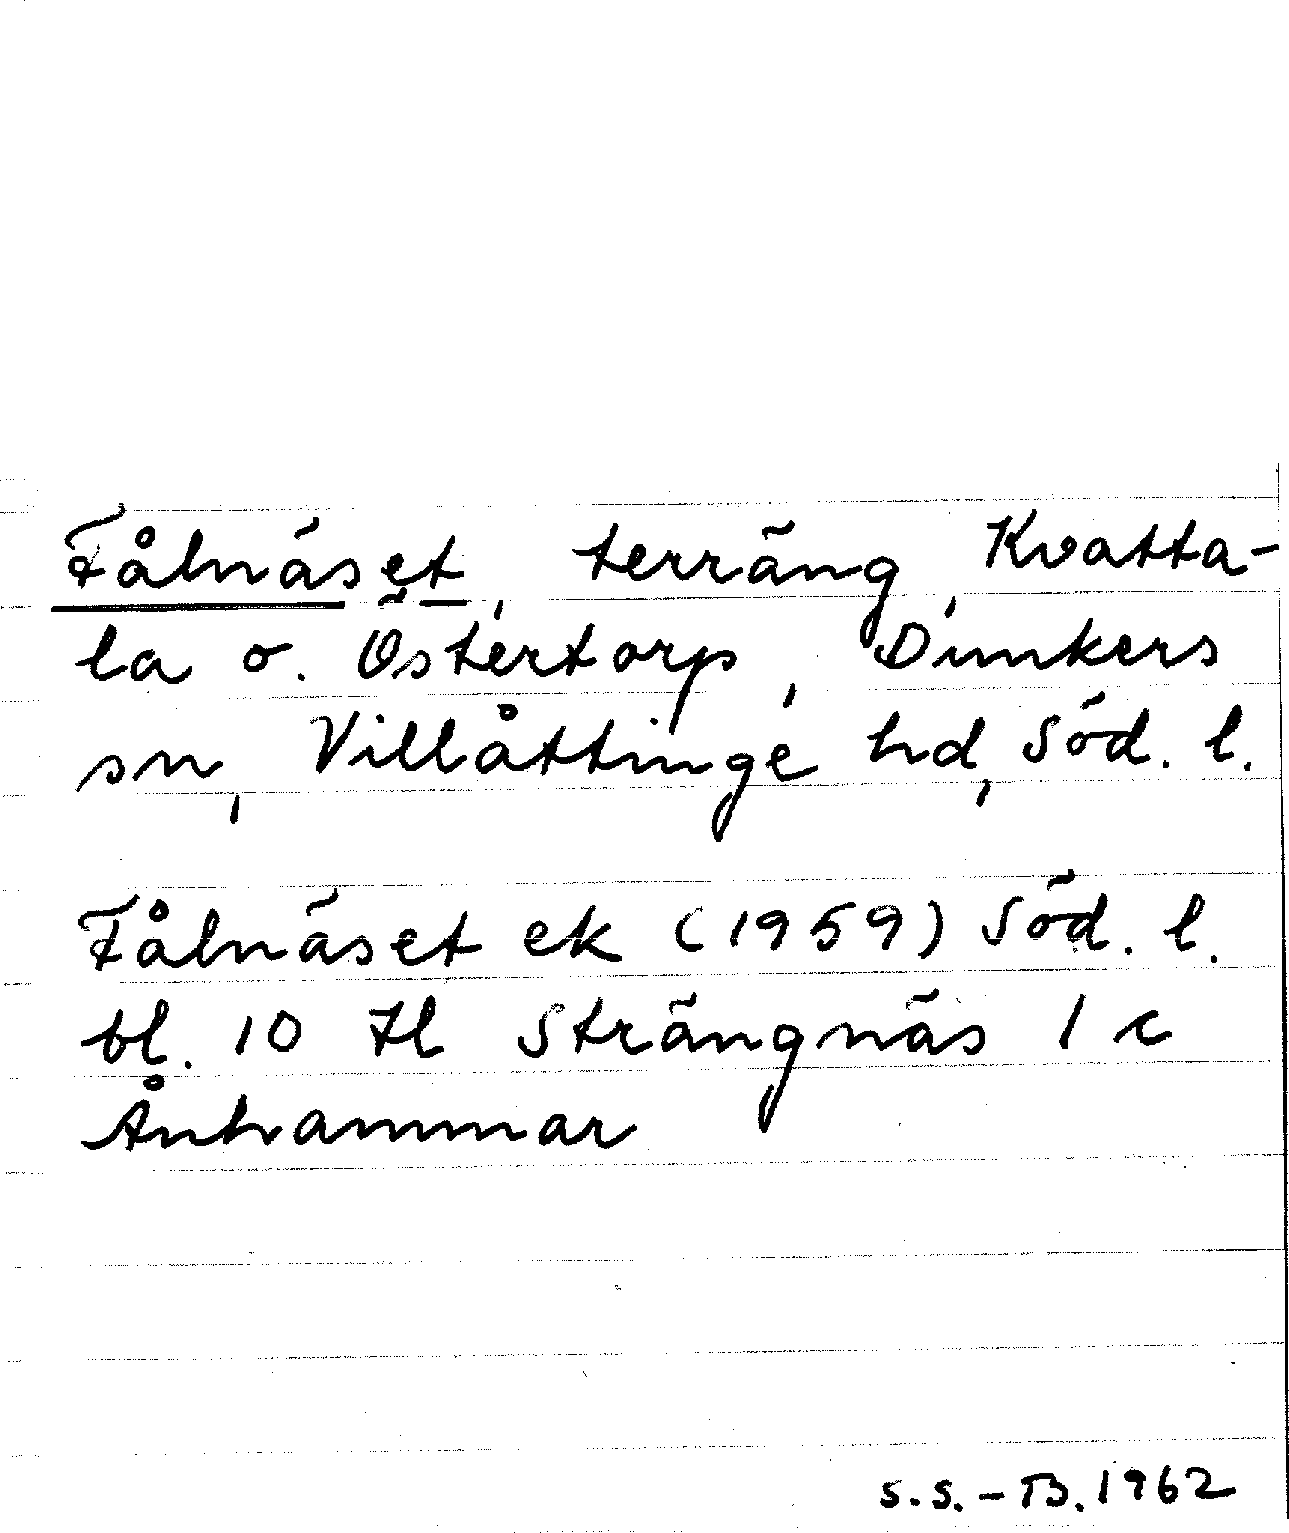 Fålnäset, terräng, Kvatta-
la o. Östertorp, Dunkers
sn, Villåttinge hd, Söd. l.
Fålnäset ek (1959) Söd. l.
bl. 10 Il Strängnäs 1 c
Ånhammar
S.S.-B. 1962